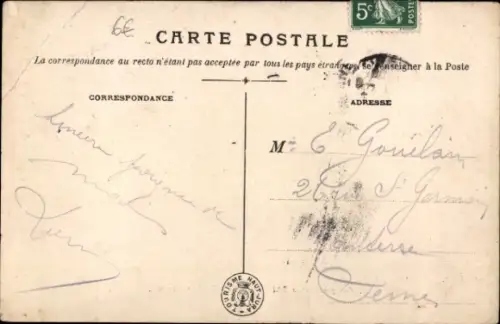 6€
5c
CARTE POSTALE
La correspondance au recto n'étant pas acceptée par tous les pays étrangers, se renseigner à la Poste
CORRESPONDANCE
ADRESSE
Sincère
M E Gouélain
2 Rue St Germain
Nanterre
Seine
TOURISME HAUT-JURA